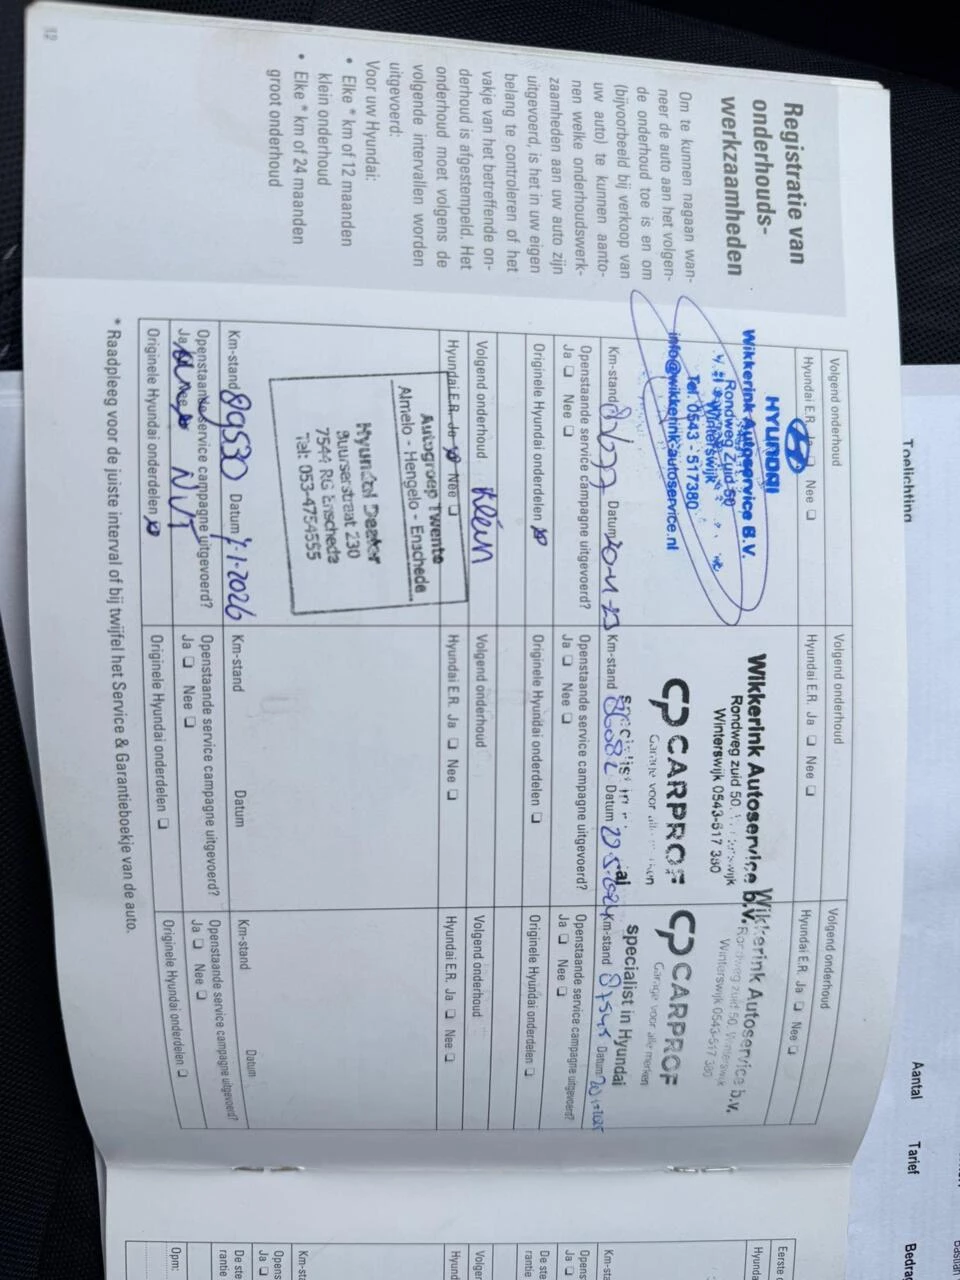 12
Registratie van
onderhouds-
werkzaamheden
Om te kunnen nagaan wan-
neer de auto aan het volgen-
de onderhoud toe is en om
(bijvoorbeeld bij verkoop van
uw auto) te kunnen aanto-
nen welke onderhoudswerk-
zaamheden aan uw auto zijn
uitgevoerd, is het in uw eigen
belang te controleren of het
vakje van het betreffende on-
derhoud is afgestempeld. Het
onderhoud moet volgens de
volgende intervallen worden
uitgevoerd:
Voor uw Hyundai:
• Elke * km of 12 maanden
klein onderhoud
• Elke * km of 24 maanden
groot onderhoud
Volgend onderhoud
Hyundai E.R. Ja ❏ Nee ❏
HYUNDAI
Wikkerink Autoservice B.V.
Rondweg Zuid 50
Winterswijk
Tel. 0543 - 517380
info@wikkerink-autoservice.nl
Km-stand Datum 20-11-23
Openstaande service campagne uitgevoerd?
Ja ❏ Nee ❏
Originele Hyundai onderdelen
Volgend onderhoud
Hyundai E.R. Ja ❏ Nee ❏
Wikkerink Autoservice b.v.
Rondweg zuid 50, Winterswijk
Winterswijk 0543-517 380
CARPROF
Garage voor alle merken
Km-stand 86082 Datum
Openstaande service campagne uitgevoerd?
Ja ❏ Nee ❏
Originele Hyundai onderdelen ❏
Volgend onderhoud
Hyundai E.R. Ja ❏ Nee ❏
Wikkerink Autoservice b.v.
Rondweg zuid 50, Winterswijk
Winterswijk 0543-517 380
CARPROF
Garage voor alle merken
specialist in Hyundai
Km-stand 87545 Datum
Openstaande service campagne uitgevoerd?
Ja ❏ Nee ❏
Originele Hyundai onderdelen ❏
Volgend onderhoud Klein
Hyundai E.R. Ja Nee ❏
Autogroep Twente
Almelo - Hengelo - Enschede
Hyundai Dealer
Buurserstraat 230
7544 RG Enschede
Tel: 053-4754555
Km-stand 89530 Datum 7-1-2026
Openstaande service campagne uitgevoerd?
Ja Nee NVT
Originele Hyundai onderdelen
Volgend onderhoud
Hyundai E.R. Ja ❏ Nee ❏
Km-stand Datum
Openstaande service campagne uitgevoerd?
Ja ❏ Nee ❏
Originele Hyundai onderdelen ❏
Volgend onderhoud
Hyundai E.R. Ja ❏ Nee ❏
Km-stand Datum
Openstaande service campagne uitgevoerd?
Ja ❏ Nee ❏
Originele Hyundai onderdelen ❏
* Raadpleeg voor de juiste interval of bij twijfel het Service & Garantieboekje van de auto.
Toelichting
Aantal Tarief Bedra
Eerste
Hyunda
Km-sta
Opens
Ja ❏
De ste
rantie
Volger
Hyund
Km-sta
Opens
Ja ❏
De ste
rantie
Opm: